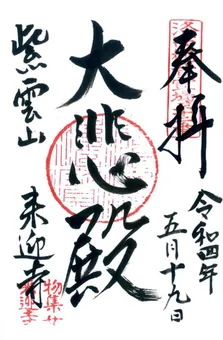 奉拝
令和四年
五月十九日
大悲殿
紫雲山
来迎寺